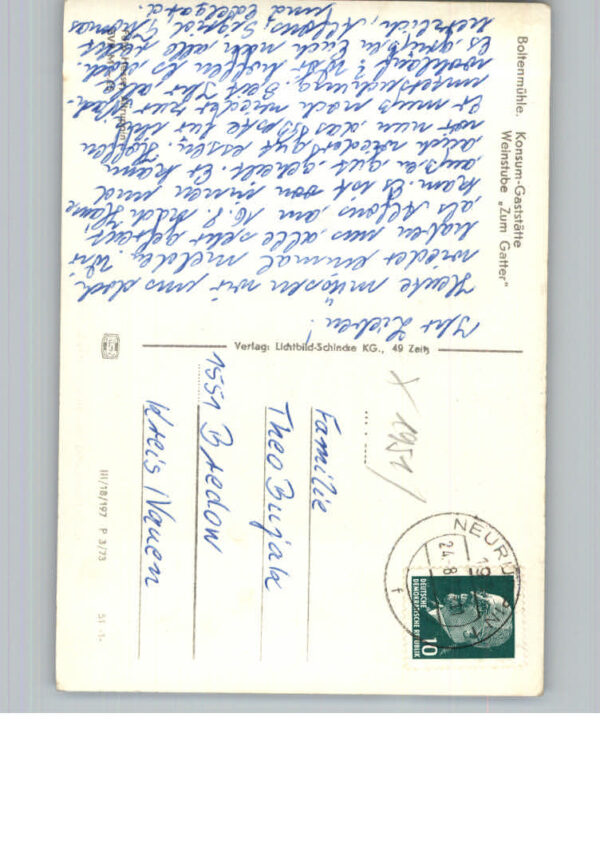 Boltenmühle. Konsum-Gaststätte
Weinstube „Zum Gatter"
Ihr Lieben!
Heute müssen wir uns doch
wieder einmal melden. Wir
haben uns alle sehr gefreut
als Alfons am 16.8. nach Hause
kam. Es ist von innen und
außen gut geheilt. Er kann
auch wieder gut essen. Hoffen
wir nun, dass es so bleibt.
Er muß noch wieder zur Nach-
untersuchung. Seit Ihr alle
wohlauf? Wir hoffen es doch.
Es grüßen Euch nun alle recht
herzlich, Alfons, Sigrid Thomas
und
Verlag: Lichtbild-Schincke KG., 49 Zeitz
X 1951/
Familie
Theo Bujak
1551 Bredow
Kreis Nauen
III/18/197 P 3/73
NEURUPPIN
24.8.
f
DEUTSCHE
DEMOKRATISCHE REPUBLIK
10